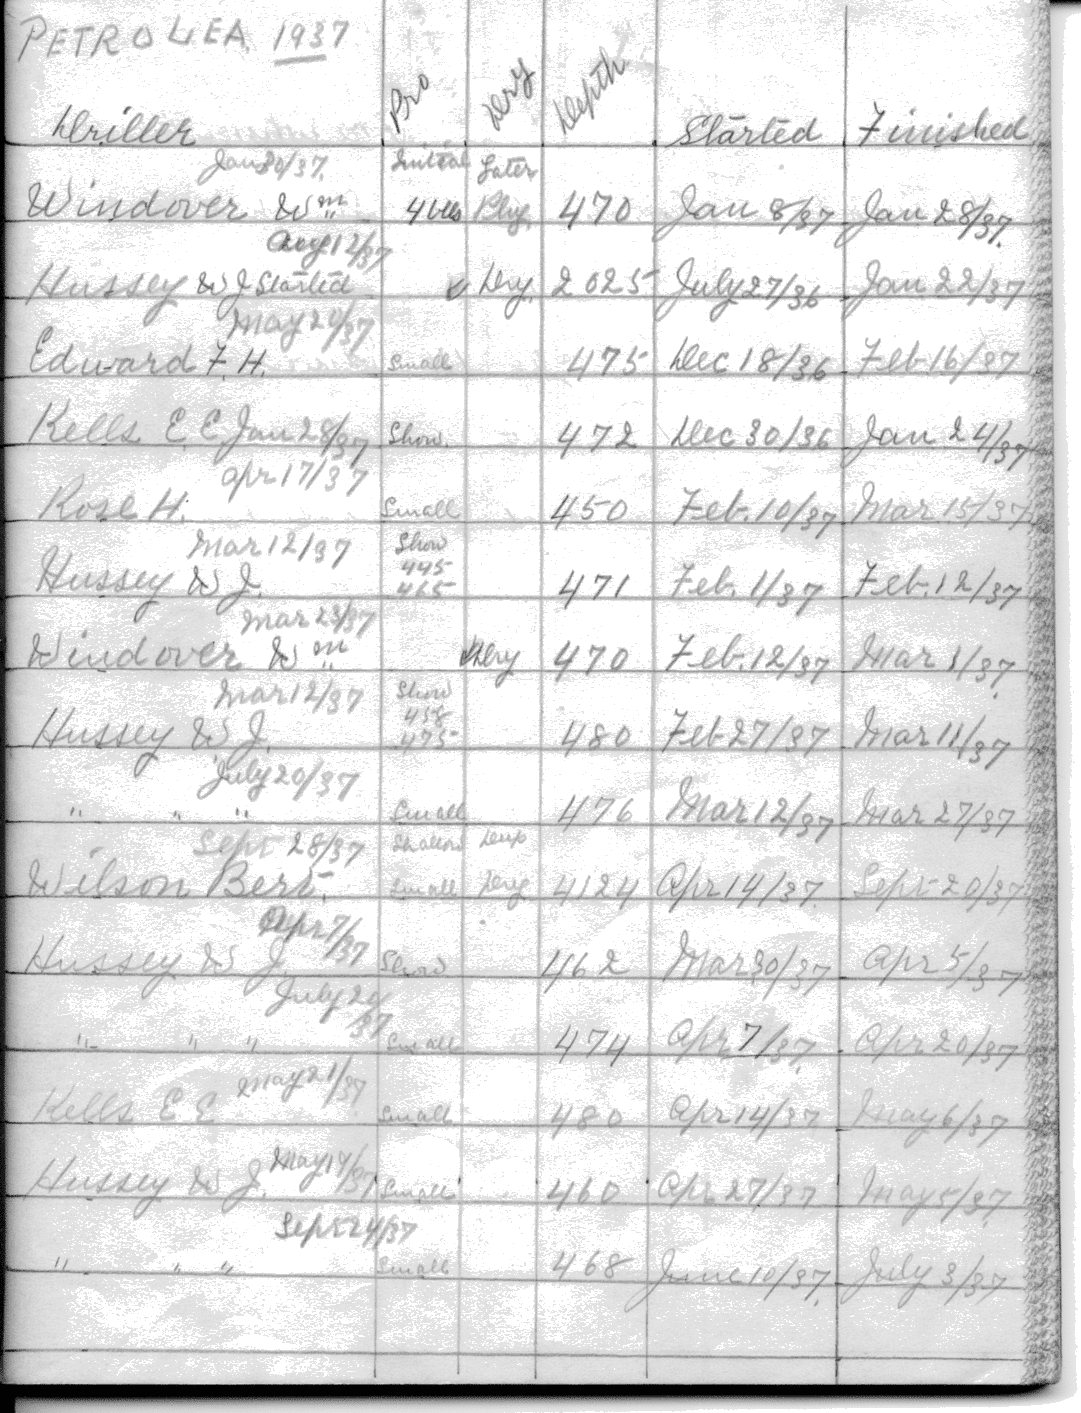 PETROLEA 1937
Driller Pro Dry Depth Started Finished
Jan 30/37. Initial Later
Windover Wm 4 bls Plug. 470 Jan 8/37 Jan 28/37.
Aug 12/37
Hussey W J Started Dry. 2025 July 27/36 Jan 22/37
May 20/37
Edward F. H. Small 475 Dec 18/36 Feb 16/37
Kells E. E. Jan 28/37 Show. 472 Dec 30/36 Jan 24/37
Apr 17/37
Rose H. Small 450 Feb. 10/37 Mar 15/37
Mar 12/37 Show
445
Hussey W J. 465 471 Feb. 1/37 Feb. 12/37
Mar 23/37
Windover Wm Dry 470 Feb. 12/37 Mar 1/37.
Mar 12/37 Show
458
Hussey W J. 475 480 Feb 27/37 Mar 11/37
July 20/37
" " " Small 476 Mar 12/37 Mar 27/37
Sept 28/37 Shallow Deep
Wilson Bert. Small Dry 4124 Apr 14/37. Sept 20/37
Apr 7/37
Hussey W J. Show 462 Mar 30/37 Apr 5/37
July 20/37
" " " Small 474 Apr 7/37. Apr 20/37
May 21/37
Kells E E Small 480 Apr 14/37 May 6/37
May 14/37
Hussey W J. Small 460 Apr 27/37 May 5/37.
Sept 24/37
" " " Small 468 June 10/37. July 3/37